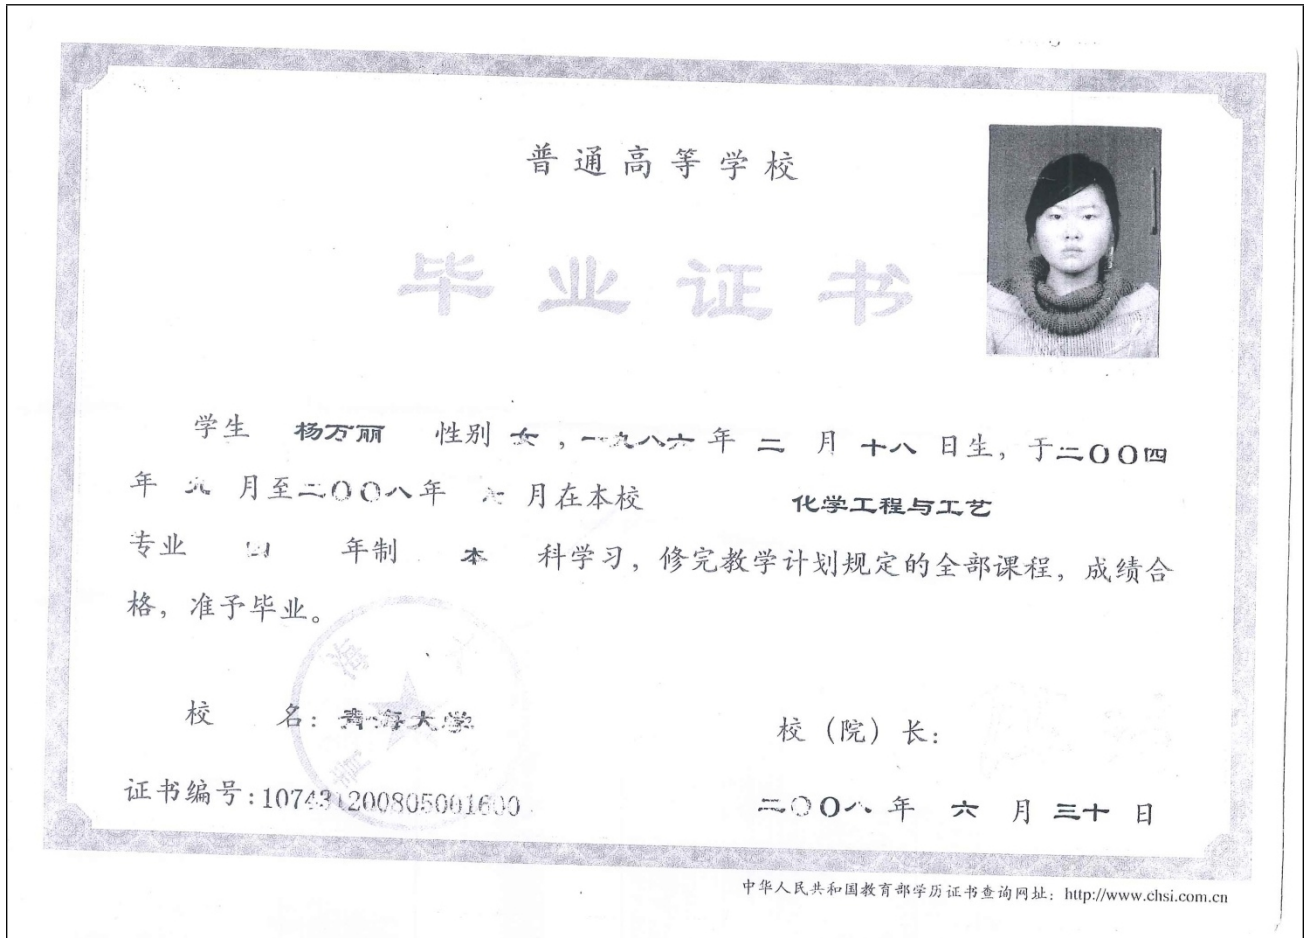 普通高等学校
毕业证书
学生 杨万丽 性别 女，一九八六年 二 月 十八 日生，于二〇〇四
年 九 月至二〇〇八年 六 月在本校 化学工程与工艺
专业 四 年制 本 科学习，修完教学计划规定的全部课程，成绩合
格，准予毕业。
校 名：青海大学
校（院）长：
证书编号：107431200805001600
二〇〇八 年 六 月 三十 日
中华人民共和国教育部学历证书查询网址：http://www.chsi.com.cn